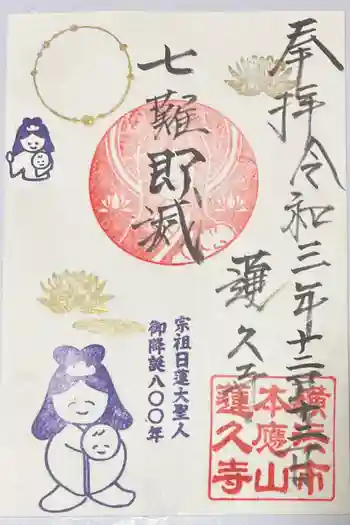 奉拝 令和三年十二月十二日
蓮久寺
七難即滅
宗祖日蓮大聖人
御降誕八〇〇年
本應山
蓮久寺